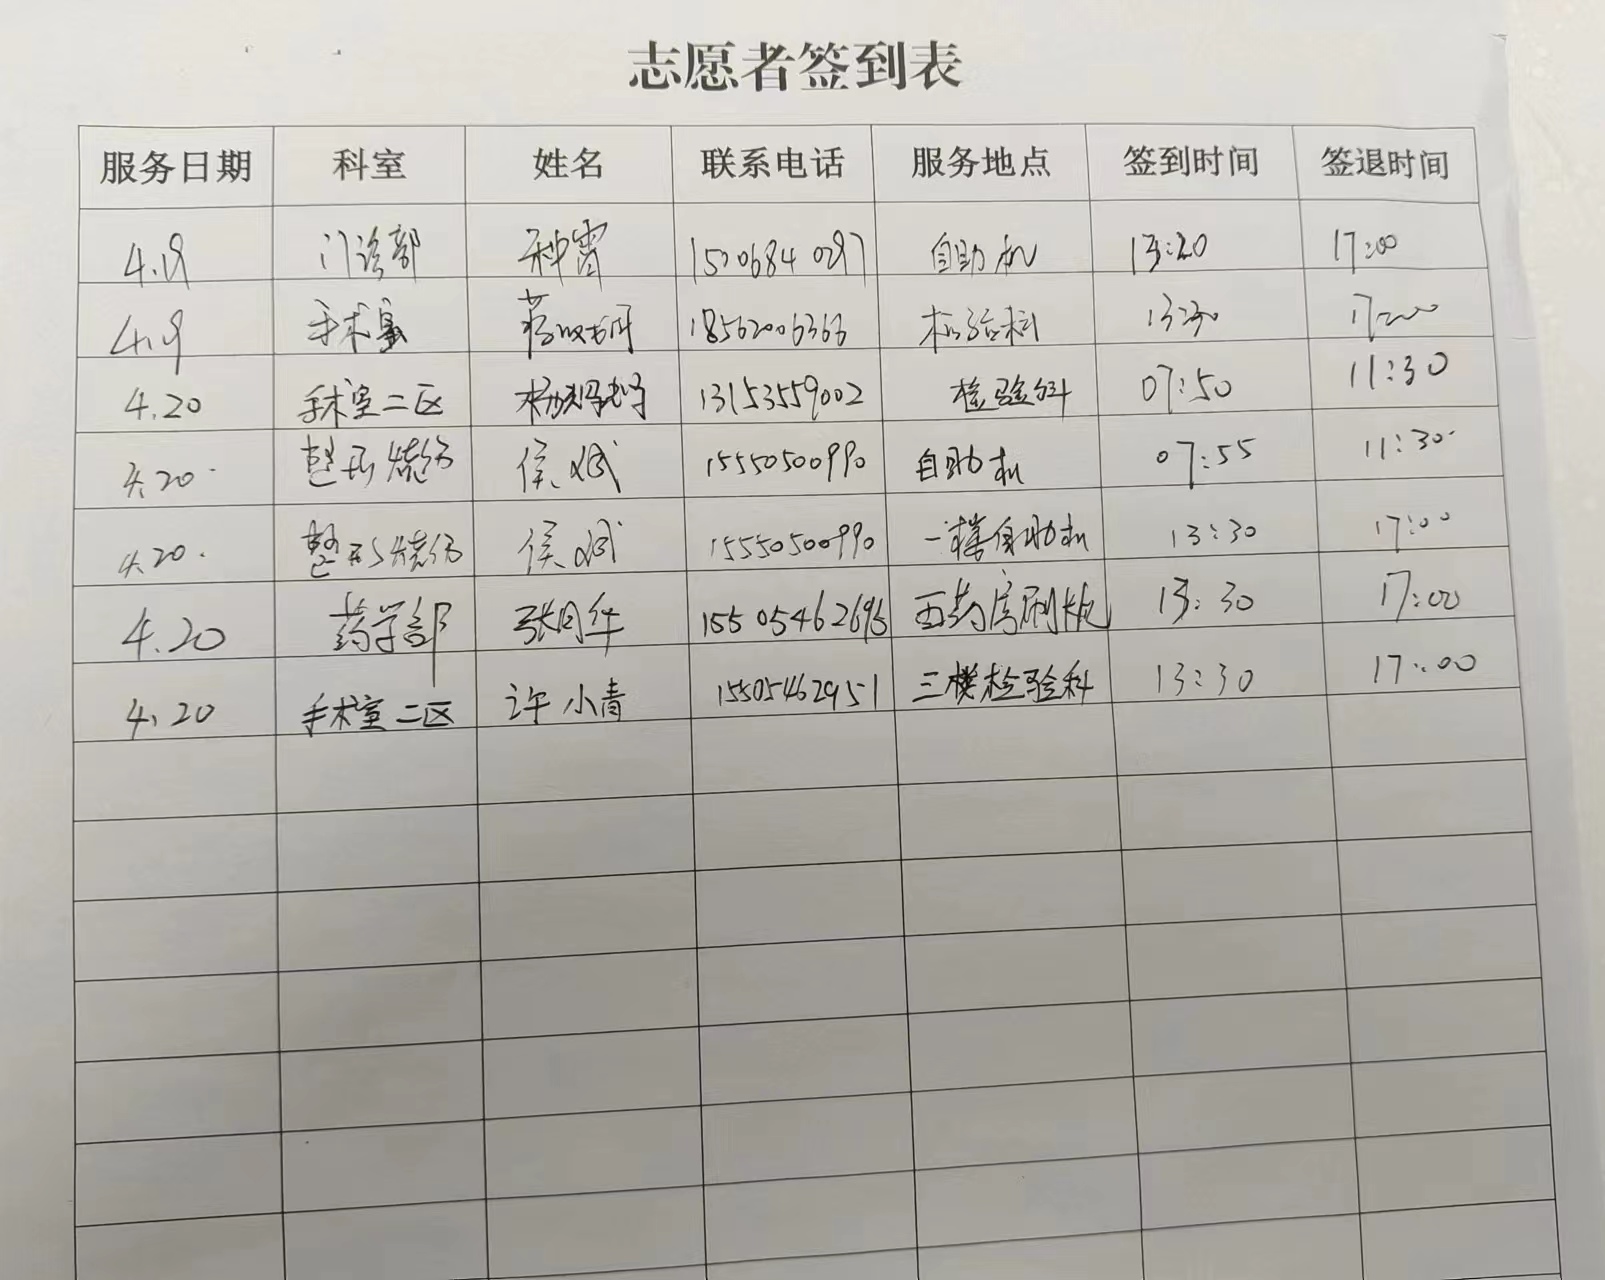 志愿者签到表
服务日期 科室 姓名 联系电话 服务地点 签到时间 签退时间
4.19 门诊部 种霄 自助机 13:20 17:00
4.19 手术室 18562006366 检验科 13:30 17:00
4.20 手术室二区 13153559002 检验科 07:50 11:30
4.20. 整形烧伤 侯斌 15550500990 自助机 07:55 11:30.
4.20. 整形烧伤 侯斌 15550500990 一楼自助机 13:30 17:00
4.20 药学部 张同华 15505462696 西药房 13:30 17:00
4.20 手术室二区 许小青 15505462951 三楼检验科 13:30 17:00